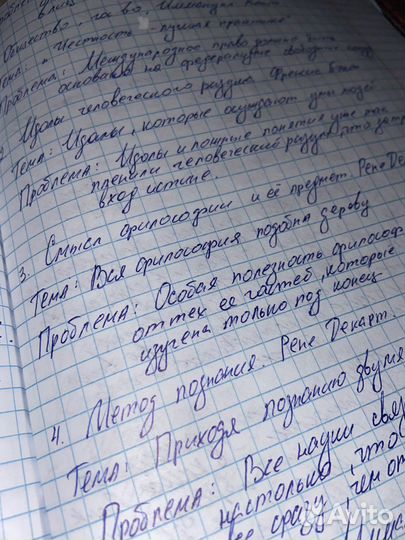 Общество, гос-во. Иммануил Кант
Тема: "Честность - лучшая практика"
Проблема: Международное право должно быть
основано на федерализме свободн. госуд.
Идолы человеческого разума. Френсис Бэкон
Тема: Идолы, которые осуждают умы людей
Проблема: Идолы и ложные понятия уже так
пленили человеческий разум, что
вход истине.
3. Смысл философии и её предмет. Рене Де
Тема: Вся философия подобна дереву
Проблема: Особая полезность филосо
от тех её частей, которые
изучена только под конец
4. Метод познания. Рене Декарт.
Тема: Приходя познанию двумя
Проблема: Все науки свя
настолько, что
её сразу, чем от
Avito